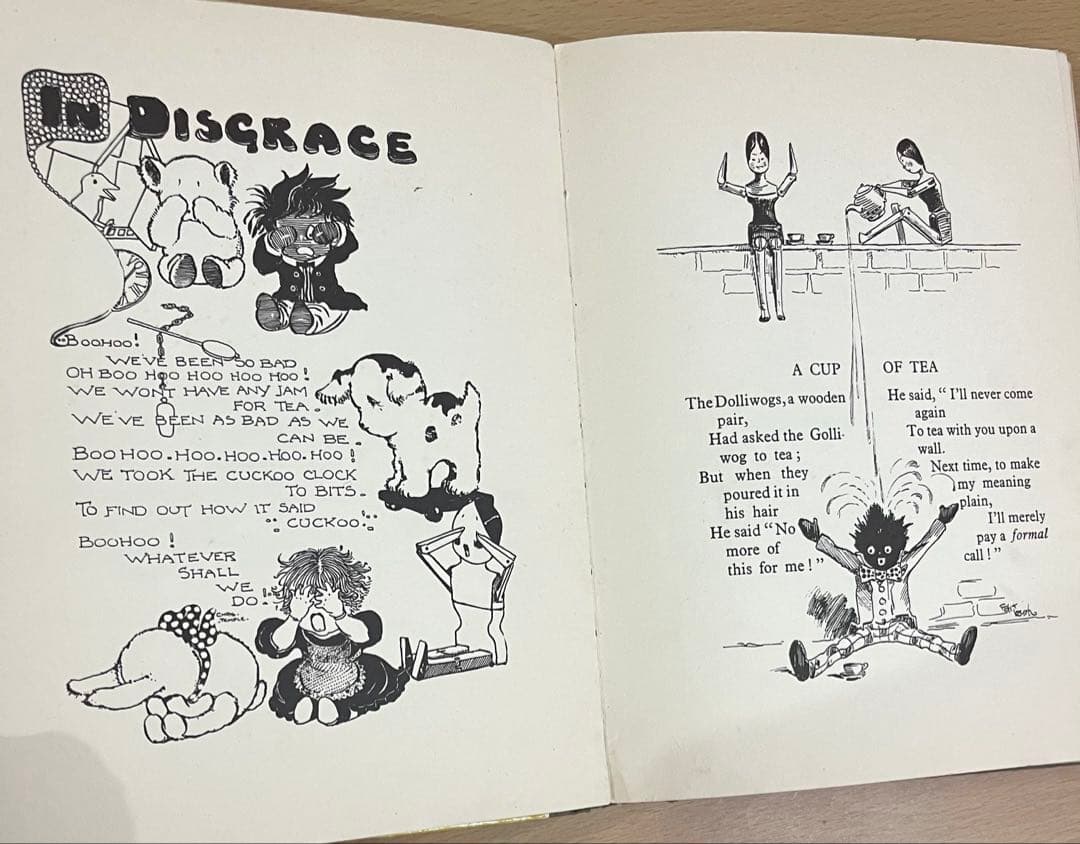 IN DISGRACE
BOOHOO!
WE'VE BEEN SO BAD
OH BOO HOO HOO HOO HOO!
WE WON'T HAVE ANY JAM
FOR TEA.
WE'VE BEEN AS BAD AS WE
CAN BE.
BOO HOO.HOO.HOO.HOO.HOO!
WE TOOK THE CUCKOO CLOCK
TO BITS.
TO FIND OUT HOW IT SAID
"CUCKOO".
BOOHOO!
WHATEVER
SHALL
WE
DO!
A CUP OF TEA
The Dolliwogs, a wooden
pair,
Had asked the Golli-
wog to tea;
But when they
poured it in
his hair
He said "No
more of
this for me!"
He said, "I'll never come
again
To tea with you upon a
wall.
Next time, to make
my meaning
plain,
I'll merely
pay a formal
call!"